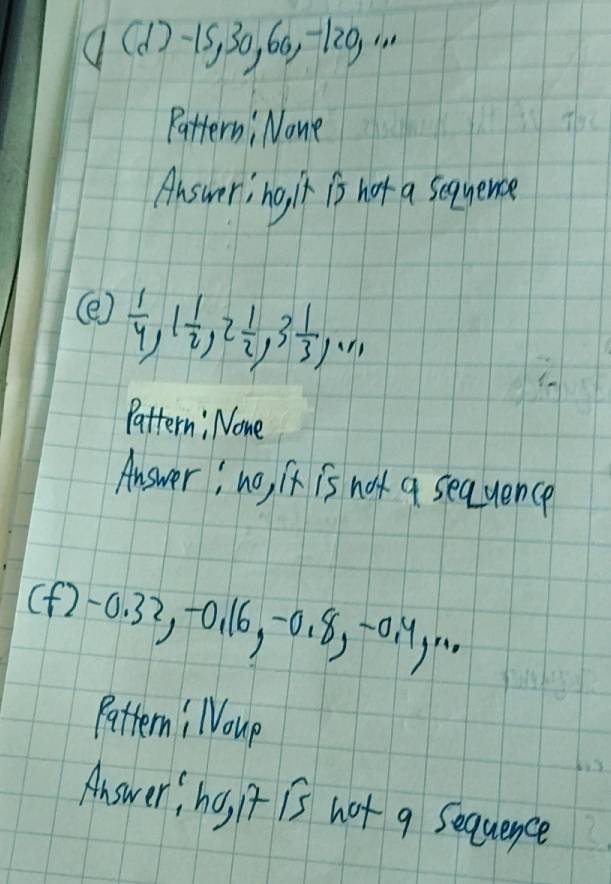 (d) -15, 30, 60, -120, ...
Pattern: None
Answer: no, it is not a sequence
(e) 1/4, 1 1/2, 2 1/2, 3 1/3, ...
Pattern: None
Answer: no, it is not a sequence
(f) -0.32, -0.16, -0.8, -0.4, ...
Pattern: None
Answer: no, it is not a sequence